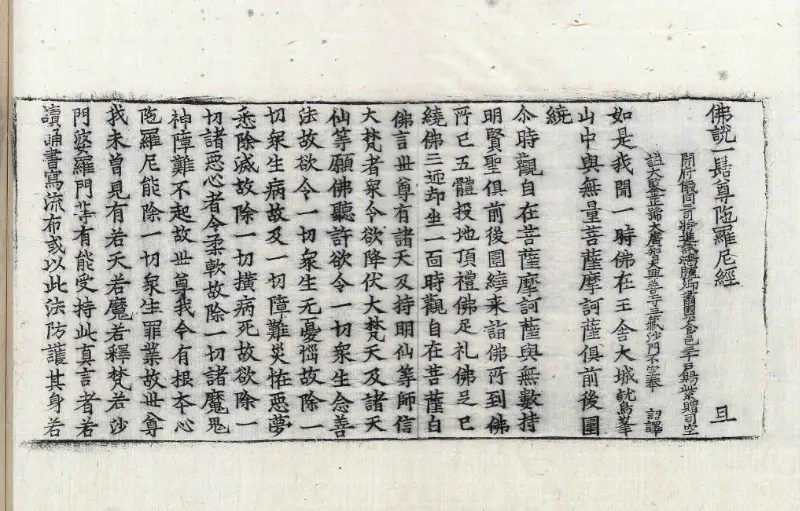 佛說一髻尊陁羅尼經 旦
開府儀同三司特進試鴻臚卿肅國公食邑三千戶賜紫贈司空
謚大鑒正號大廣智大興善寺三藏沙門不空奉 詔譯
如是我聞一時佛在王舍大城鷲峯
山中與無量菩薩摩訶薩俱前後圍
繞
尒時觀自在菩薩摩訶薩與無數持
明賢聖俱前後圍繞来詣佛所到佛
所已五體投地頂禮佛足礼佛足已
繞佛三迊却坐一面時觀自在菩薩白
佛言世尊有諸天及持明仙等師信
大梵者衆令欲降伏大梵天及諸天
仙等願佛聽許欲令一切衆生念善
法故欲令一切衆生无憂惱故除一
切衆生病故及一切障難災恠惡夢
悉除滅故除一切橫病死故欲除一
切諸惡心者令柔軟故除一切諸魔鬼
神障難不起故世尊我今有根本心
陁羅尼能除一切衆生罪業故世尊
我未曾見有若天若魔若釋梵若沙
門婆羅門等有能受持此真言者若
讀誦書寫流布或以此法防護其身若